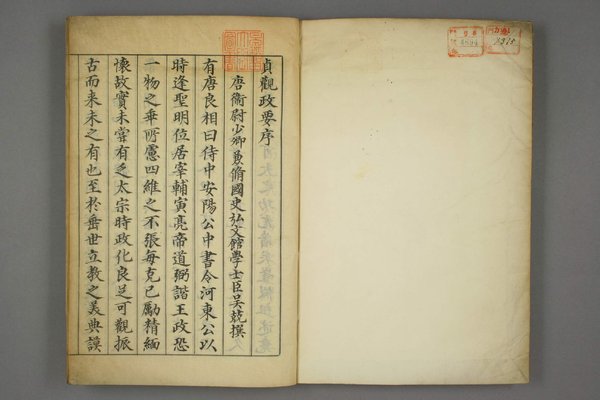 貞觀政要序
唐衛尉少卿兼脩國史弘文館學士臣吳兢撰
有唐良相曰侍中安陽公中書令河東公以
時逢聖明位居宰輔寅亮帝道弼諧王政恐
一物之乖所慮四維之不張每克已勵精緬
懷故實未嘗有乏太宗時政化良足可觀振
古而來未之有也至於垂世立教之美典謨